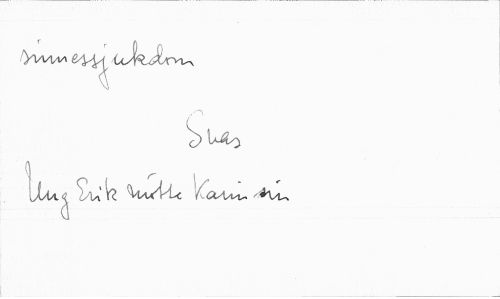 sinnessjukdom
Svas
Ung Erik mötte Karin sin